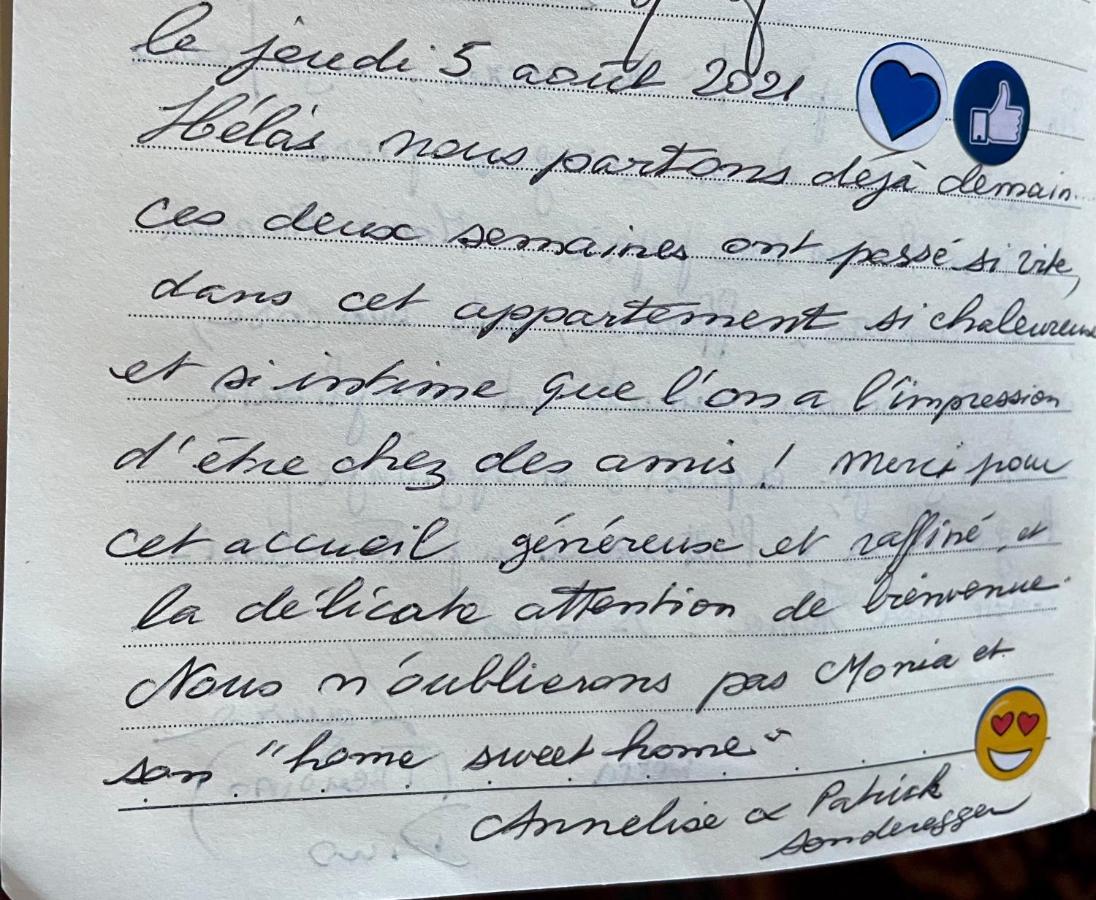 le jeudi 5 août 2021
Hélas nous partons déjà demain.
ces deux semaines ont passé si vite,
dans cet appartement si chaleureux
et si intime que l'on a l'impression
d'être chez des amis ! Merci pour
cet accueil généreux et raffiné, et
la délicate attention de bienvenue.
Nous n'oublierons pas Monia et
son "home sweet home"
Annelise & Patrick
Sonderegger